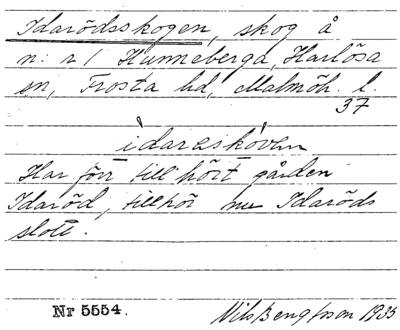 Idarödsskogen, skog å
n: r 1 Hunneberga, Harlösa
sn, Frosta hd, Malmöh. l.
37
idaraskovan
Har förr till hört gården
Idaröd, tillhör nu Idaröds
slott.
Nr 5554. Nils Bengtsson 1933